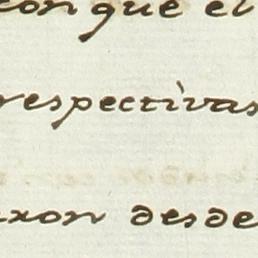 con que el
respectivas
uxon desde